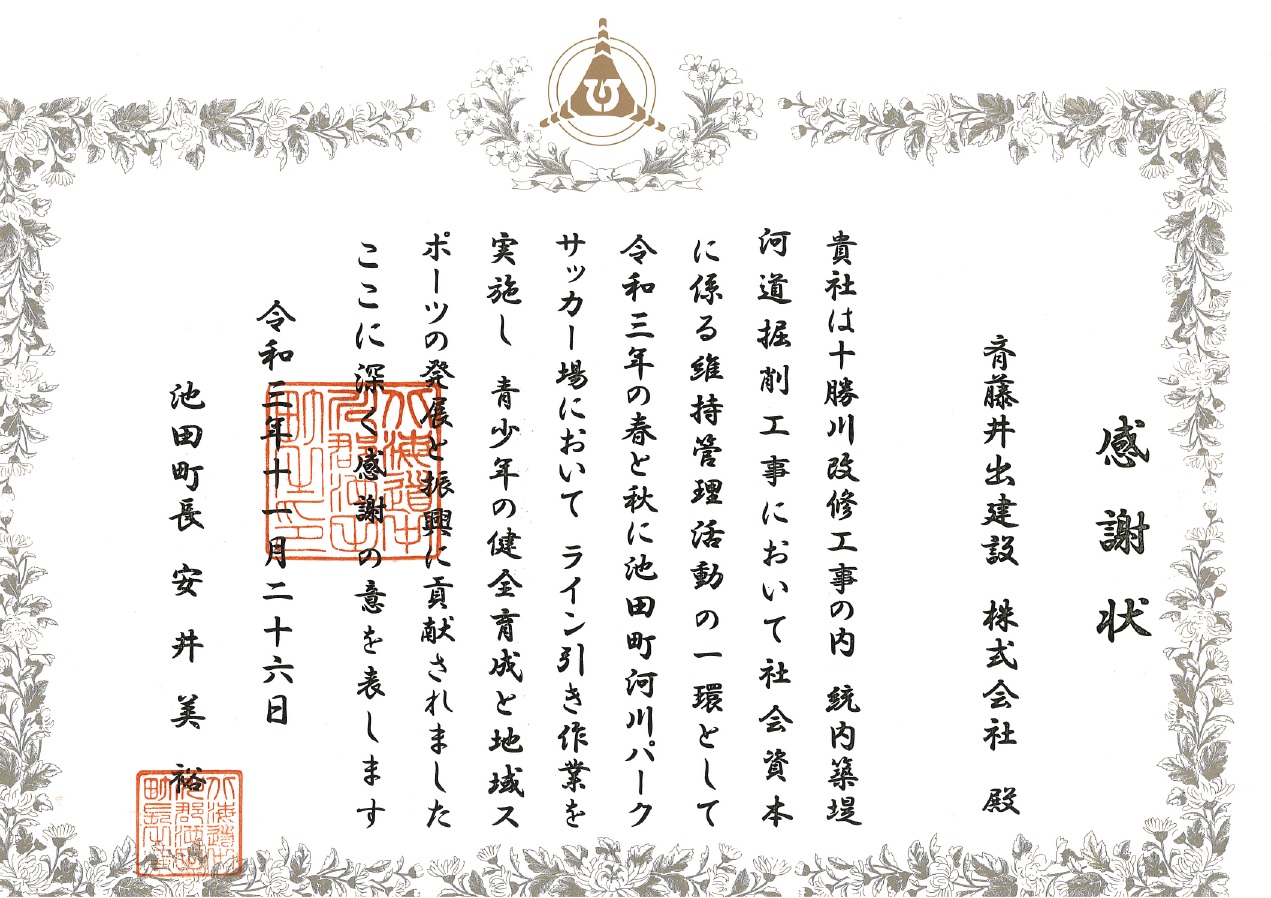 感謝状
斉藤井出建設 株式会社 殿
貴社は十勝川改修工事の内 統内築堤
河道掘削工事において社会資本
に係る維持管理活動の一環として
令和三年の春と秋に池田町河川パーク
サッカー場において ライン引き作業を
実施し 青少年の健全育成と地域ス
ポーツの発展と振興に貢献されました
ここに深く感謝の意を表します
令和三年十一月二十六日
池田町長 安井美裕